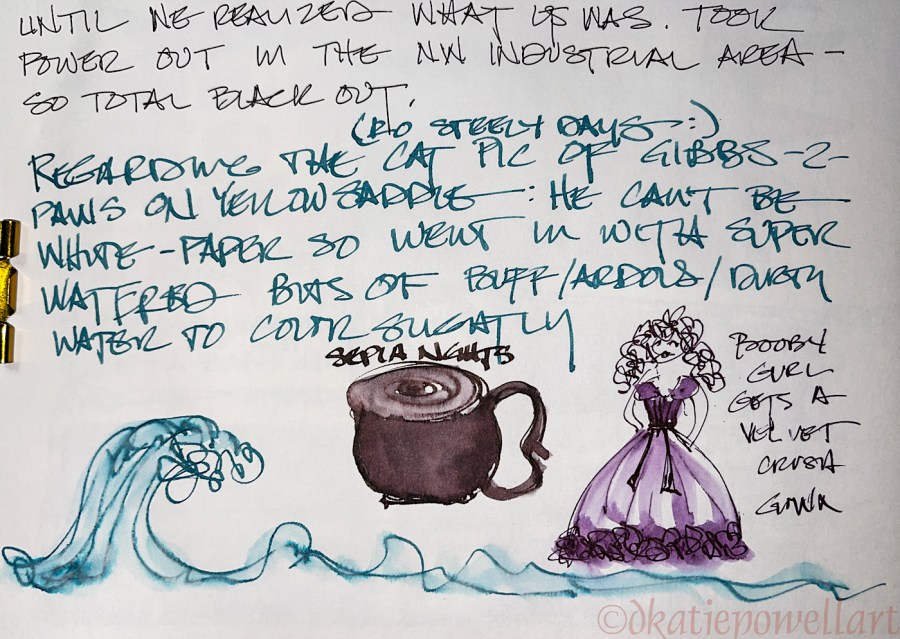 UNTIL WE REALIZED WHAT IT WAS. TOOK
POWER OUT IN THE NW INDUSTRIAL AREA —
SO TOTAL BLACK OUT.
(R/O STEELY DAYS :)
REGARDING THE CAT PIC OF GIBBS-2-
PAWS ON YELLOW SADDLE: HE CAN'T BE
WHITE-PAPER SO WENT IN WITH SUPER
WATERED BITS OF BUFF/ARDOIS/DIRTY
WATER TO COLOR SLIGHTLY
SEPIA NIGHTS
BOOBY
GURL
GETS A
VELVET
CRUSH
GOWN
©dkatiepowellart